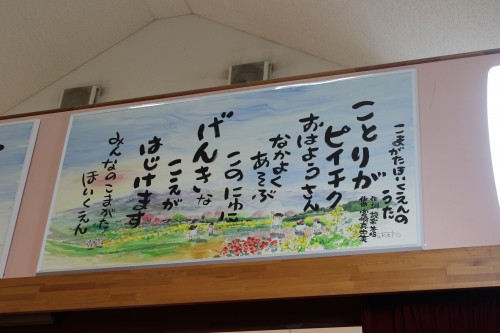 こまがたほいくえんの
うた
ことりが
ピイチク
おはようさん
なかよく
あそぶ
げんきな
このにゆに
こえが
はじけます
みんなのこまがた
ほいくえん